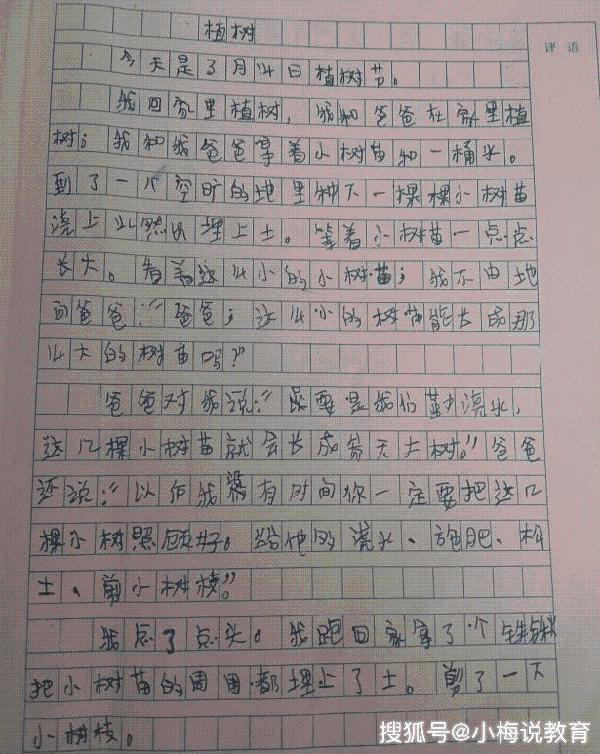 植树
评语
今天是3月14日植树节。
我回家里植树，我和爸爸在家里植
树；我和我爸爸拿着小树苗和一桶水。
到了一个空旷的地里种下一棵棵小树苗
浇上水然以埋上土。等着小树苗一点点
长大。看着这么小的小树苗；我不由地
问爸爸："爸爸；这么小的树苗能长成那
么大的树苗吗？"
爸爸对我说："只要是我们勤浇水，
这几棵小树苗就会长成参天大树。"爸爸
还说："以后我没有时间你一定要把这几
棵小树照顾好。给他的浇水、施肥、松
土、剪小树枝。"
我点了点头。我跑回家拿了个铁锹
把小树苗的周围都埋上了土。剪了一下
小树枝。
搜狐号@小梅说教育